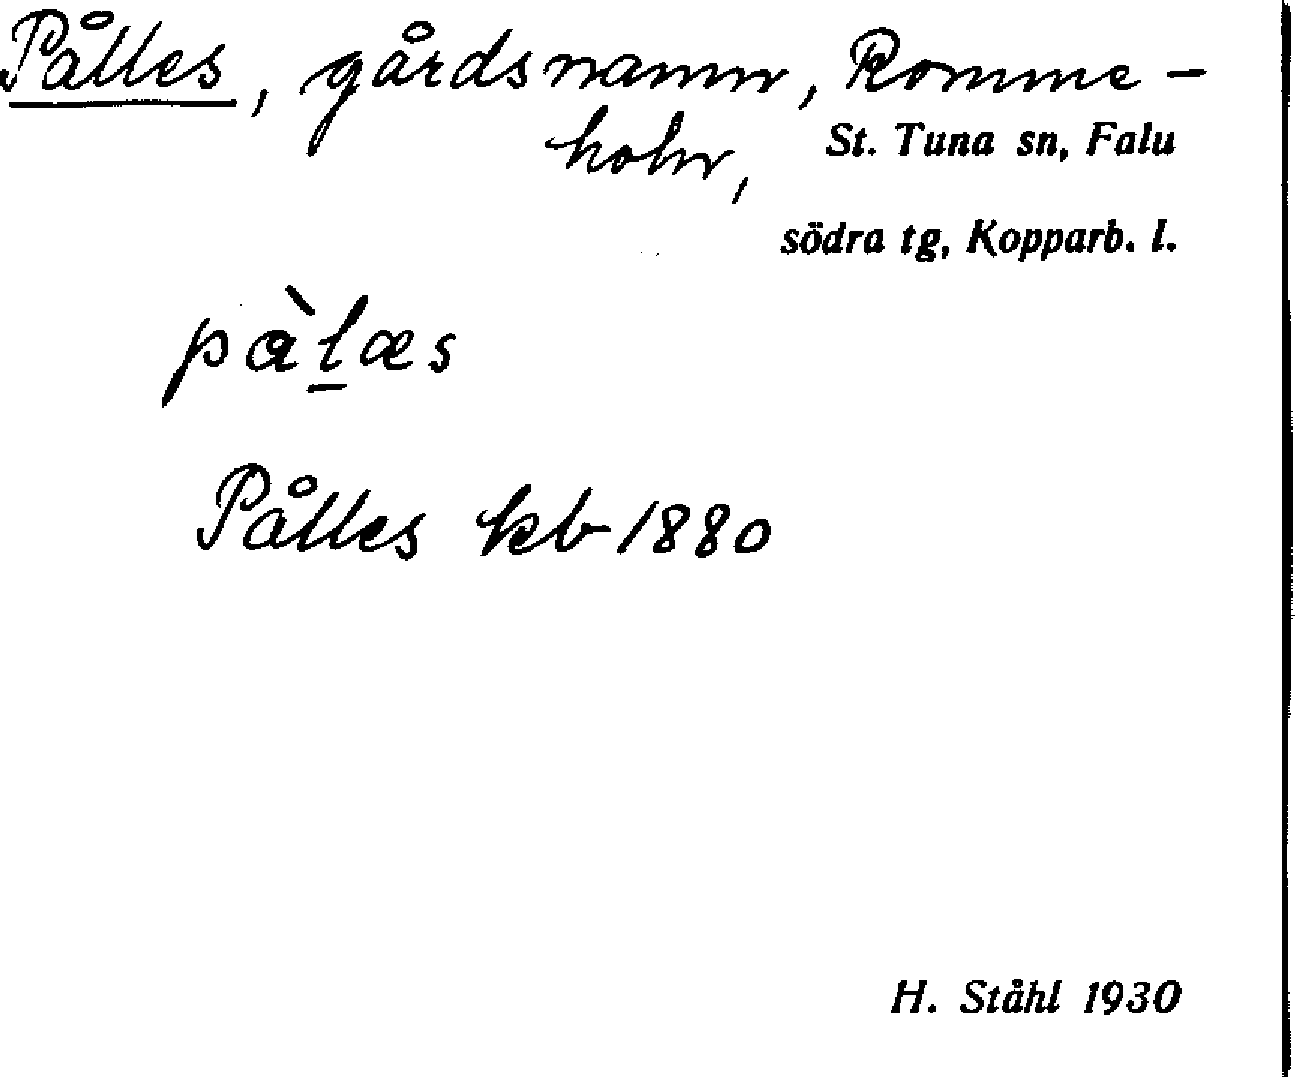 Pålles, gårdsnamn, Romme-
holm, St. Tuna sn, Falu
södra tg, Kopparb. l.
pàl̠æs
Pålles kb 1880
H. Ståhl 1930